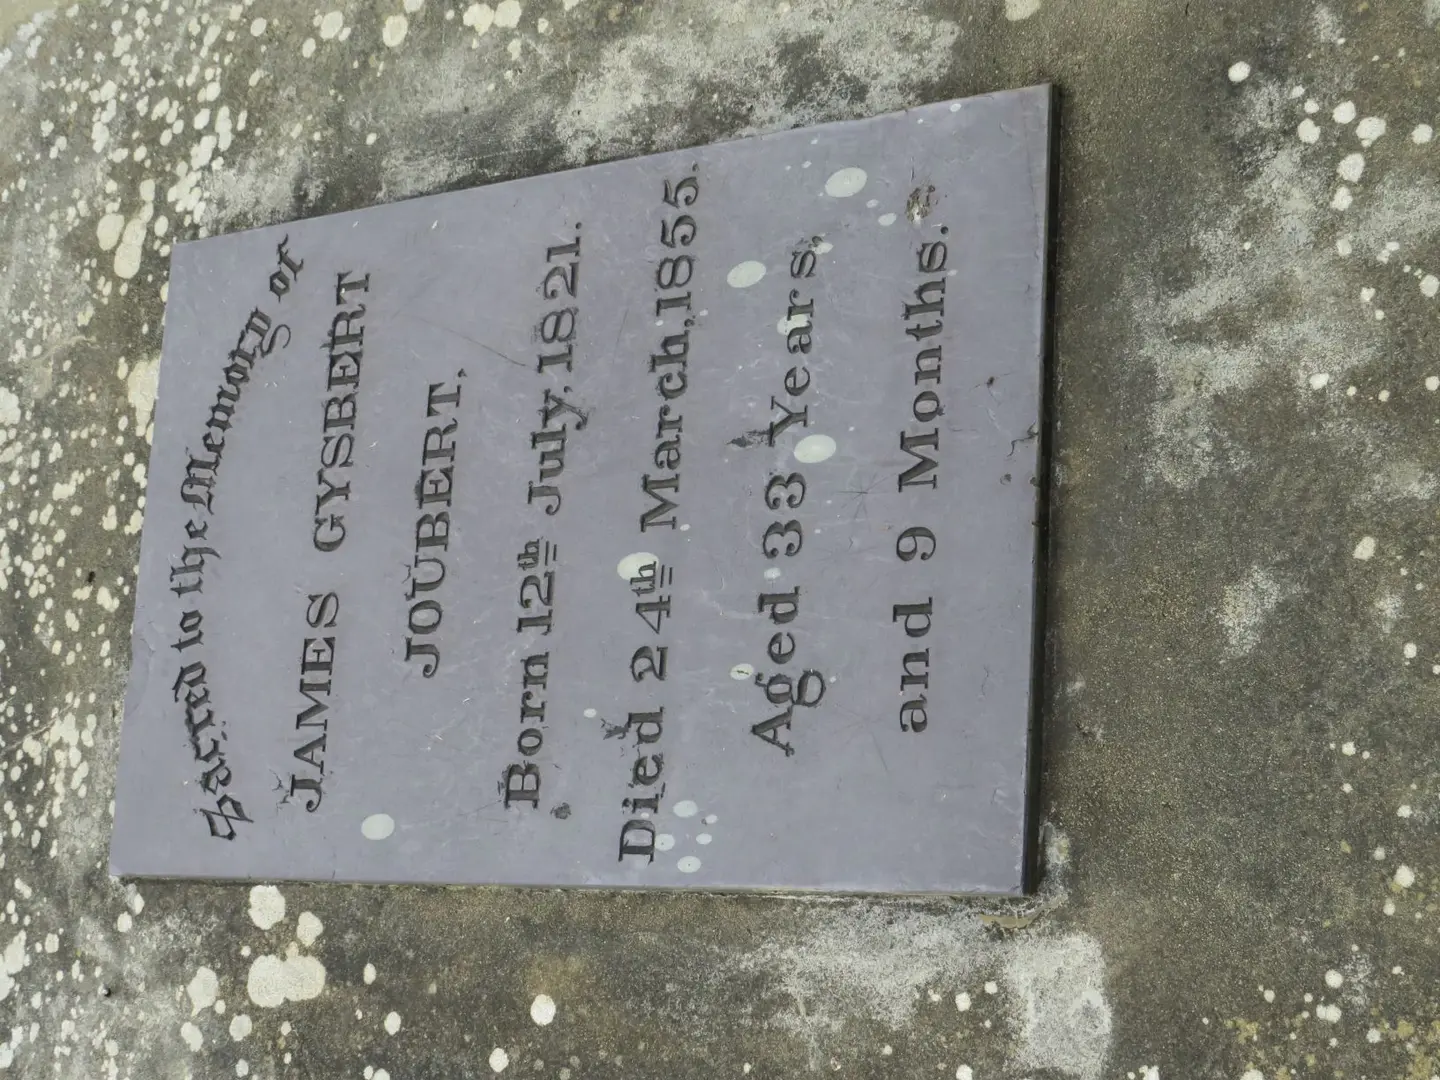 Sacred to the Memory of
JAMES GYSBERT
JOUBERT,
Born 12th July, 1821.
Died 24th March, 1855.
Aged 33 Years,
and 9 Months.